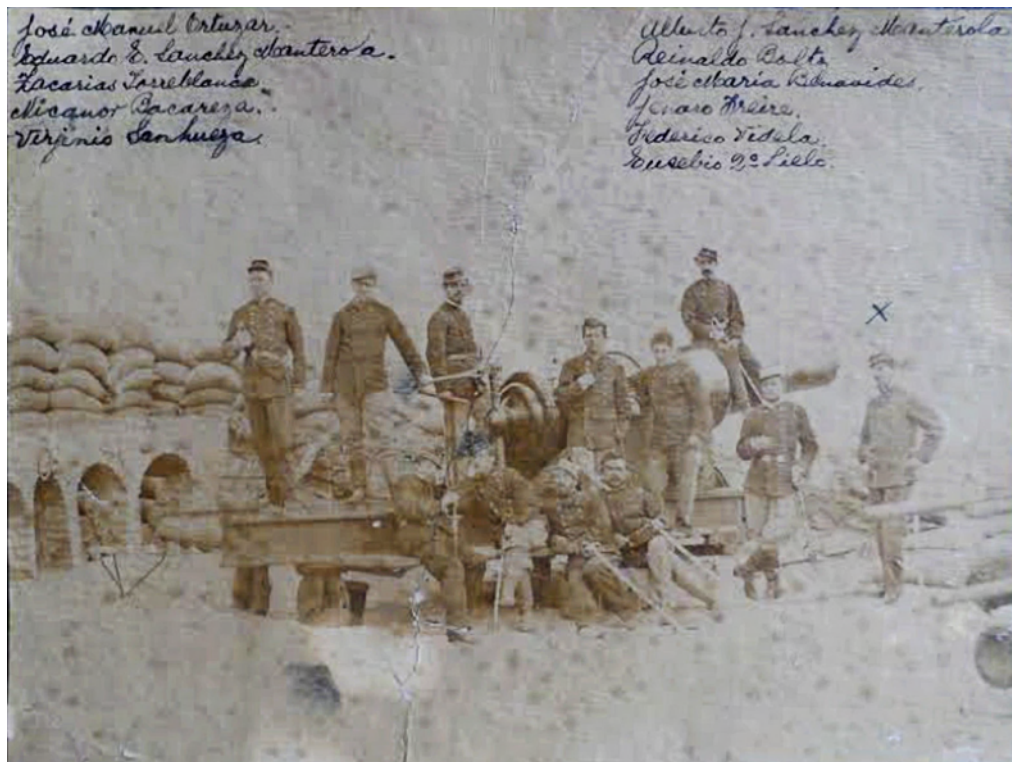 José Manuel Ortuzar.
Eduardo E. Sanchez Manterola.
Zacarias Torreblanca.
Nicanor Bacareza.
Virjinio Sanhueza.
Alberto J. Sanchez Manterola
Reinaldo Boltz
José Maria Benavides.
Jenaro Freire.
Federico Videla.
Eusebio 2º Lillo.
X